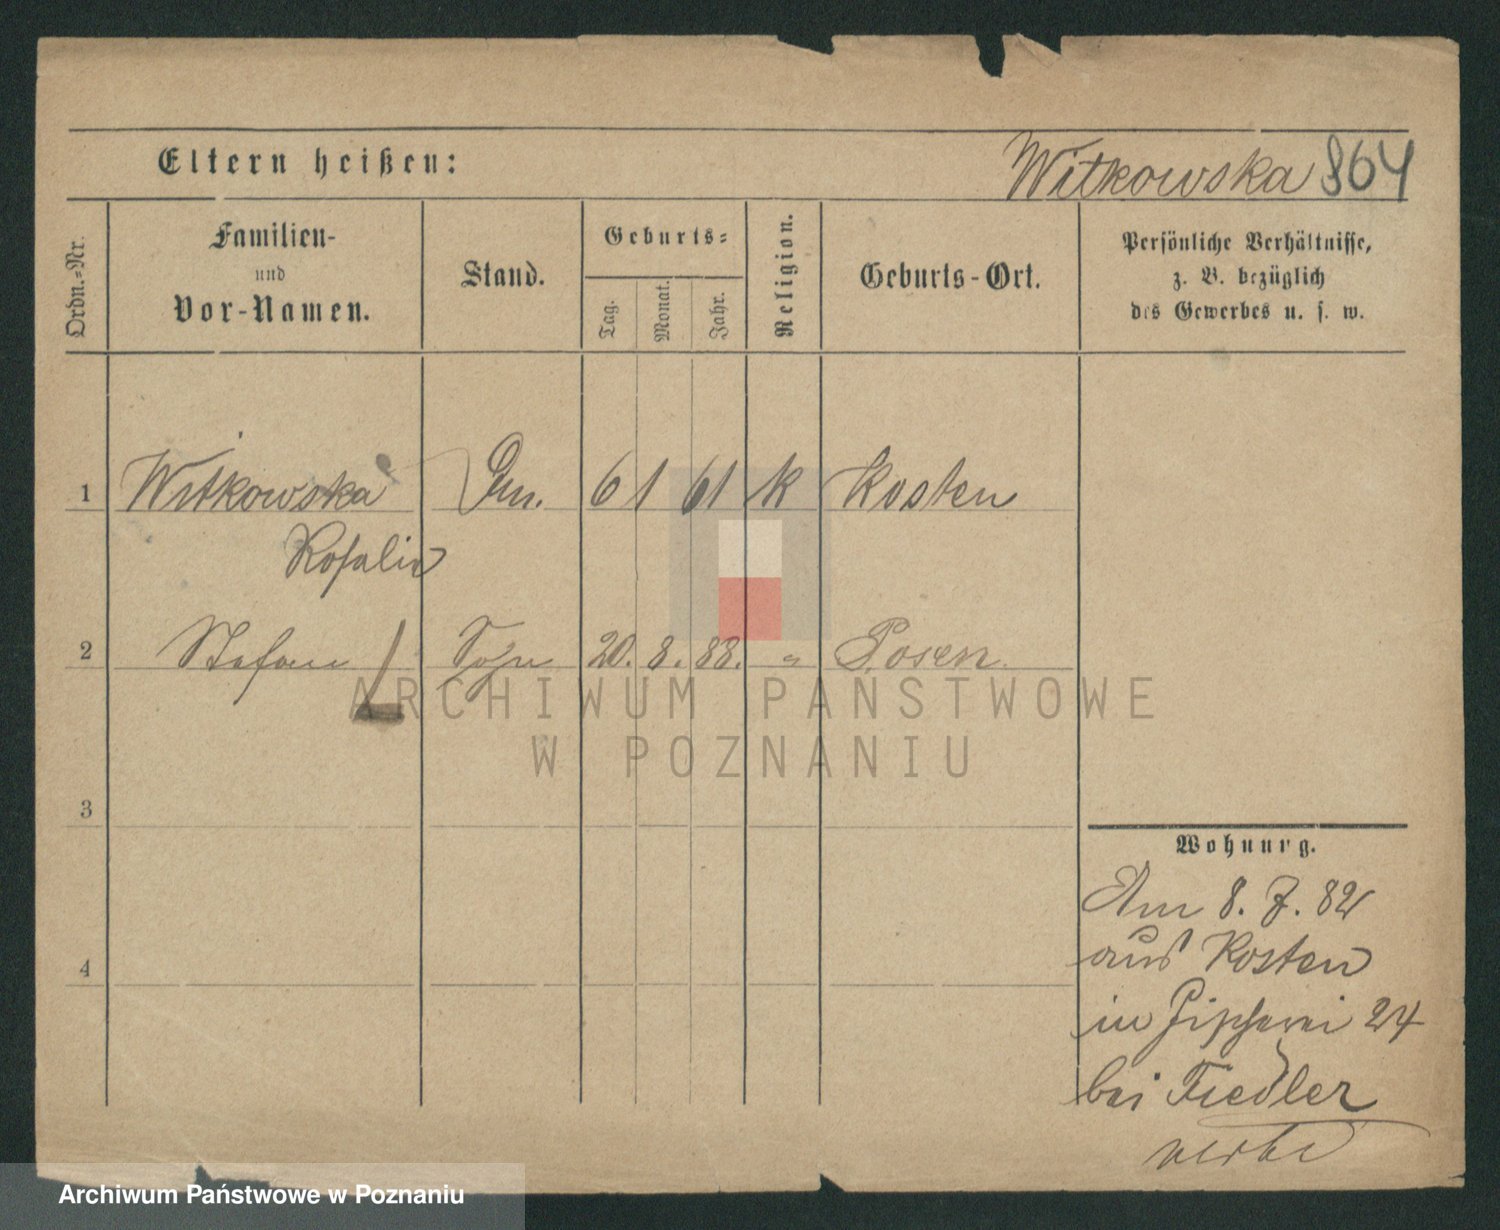 Eltern heißen:
Witkowska 864
Ordn.=Nr.
Familien-
und
Vor-Namen.
Stand.
Geburts=
Tag.
Monat.
Jahr.
Religion.
Geburts-Ort.
Persönliche Verhältnisse,
z. B. bezüglich
des Gewerbes u. s. w.
1 Witkowska 6 1 61 k Kosten
Rosalie
2 Stefan 20. 8. 88. " Posen
3
4
Wohnung.
Am 8. 7. 82
aus Kosten
in Fischerei 24
bei Fiedler
ARCHIWUM PAŃSTWOWE
W POZNANIU
Archiwum Państwowe w Poznaniu